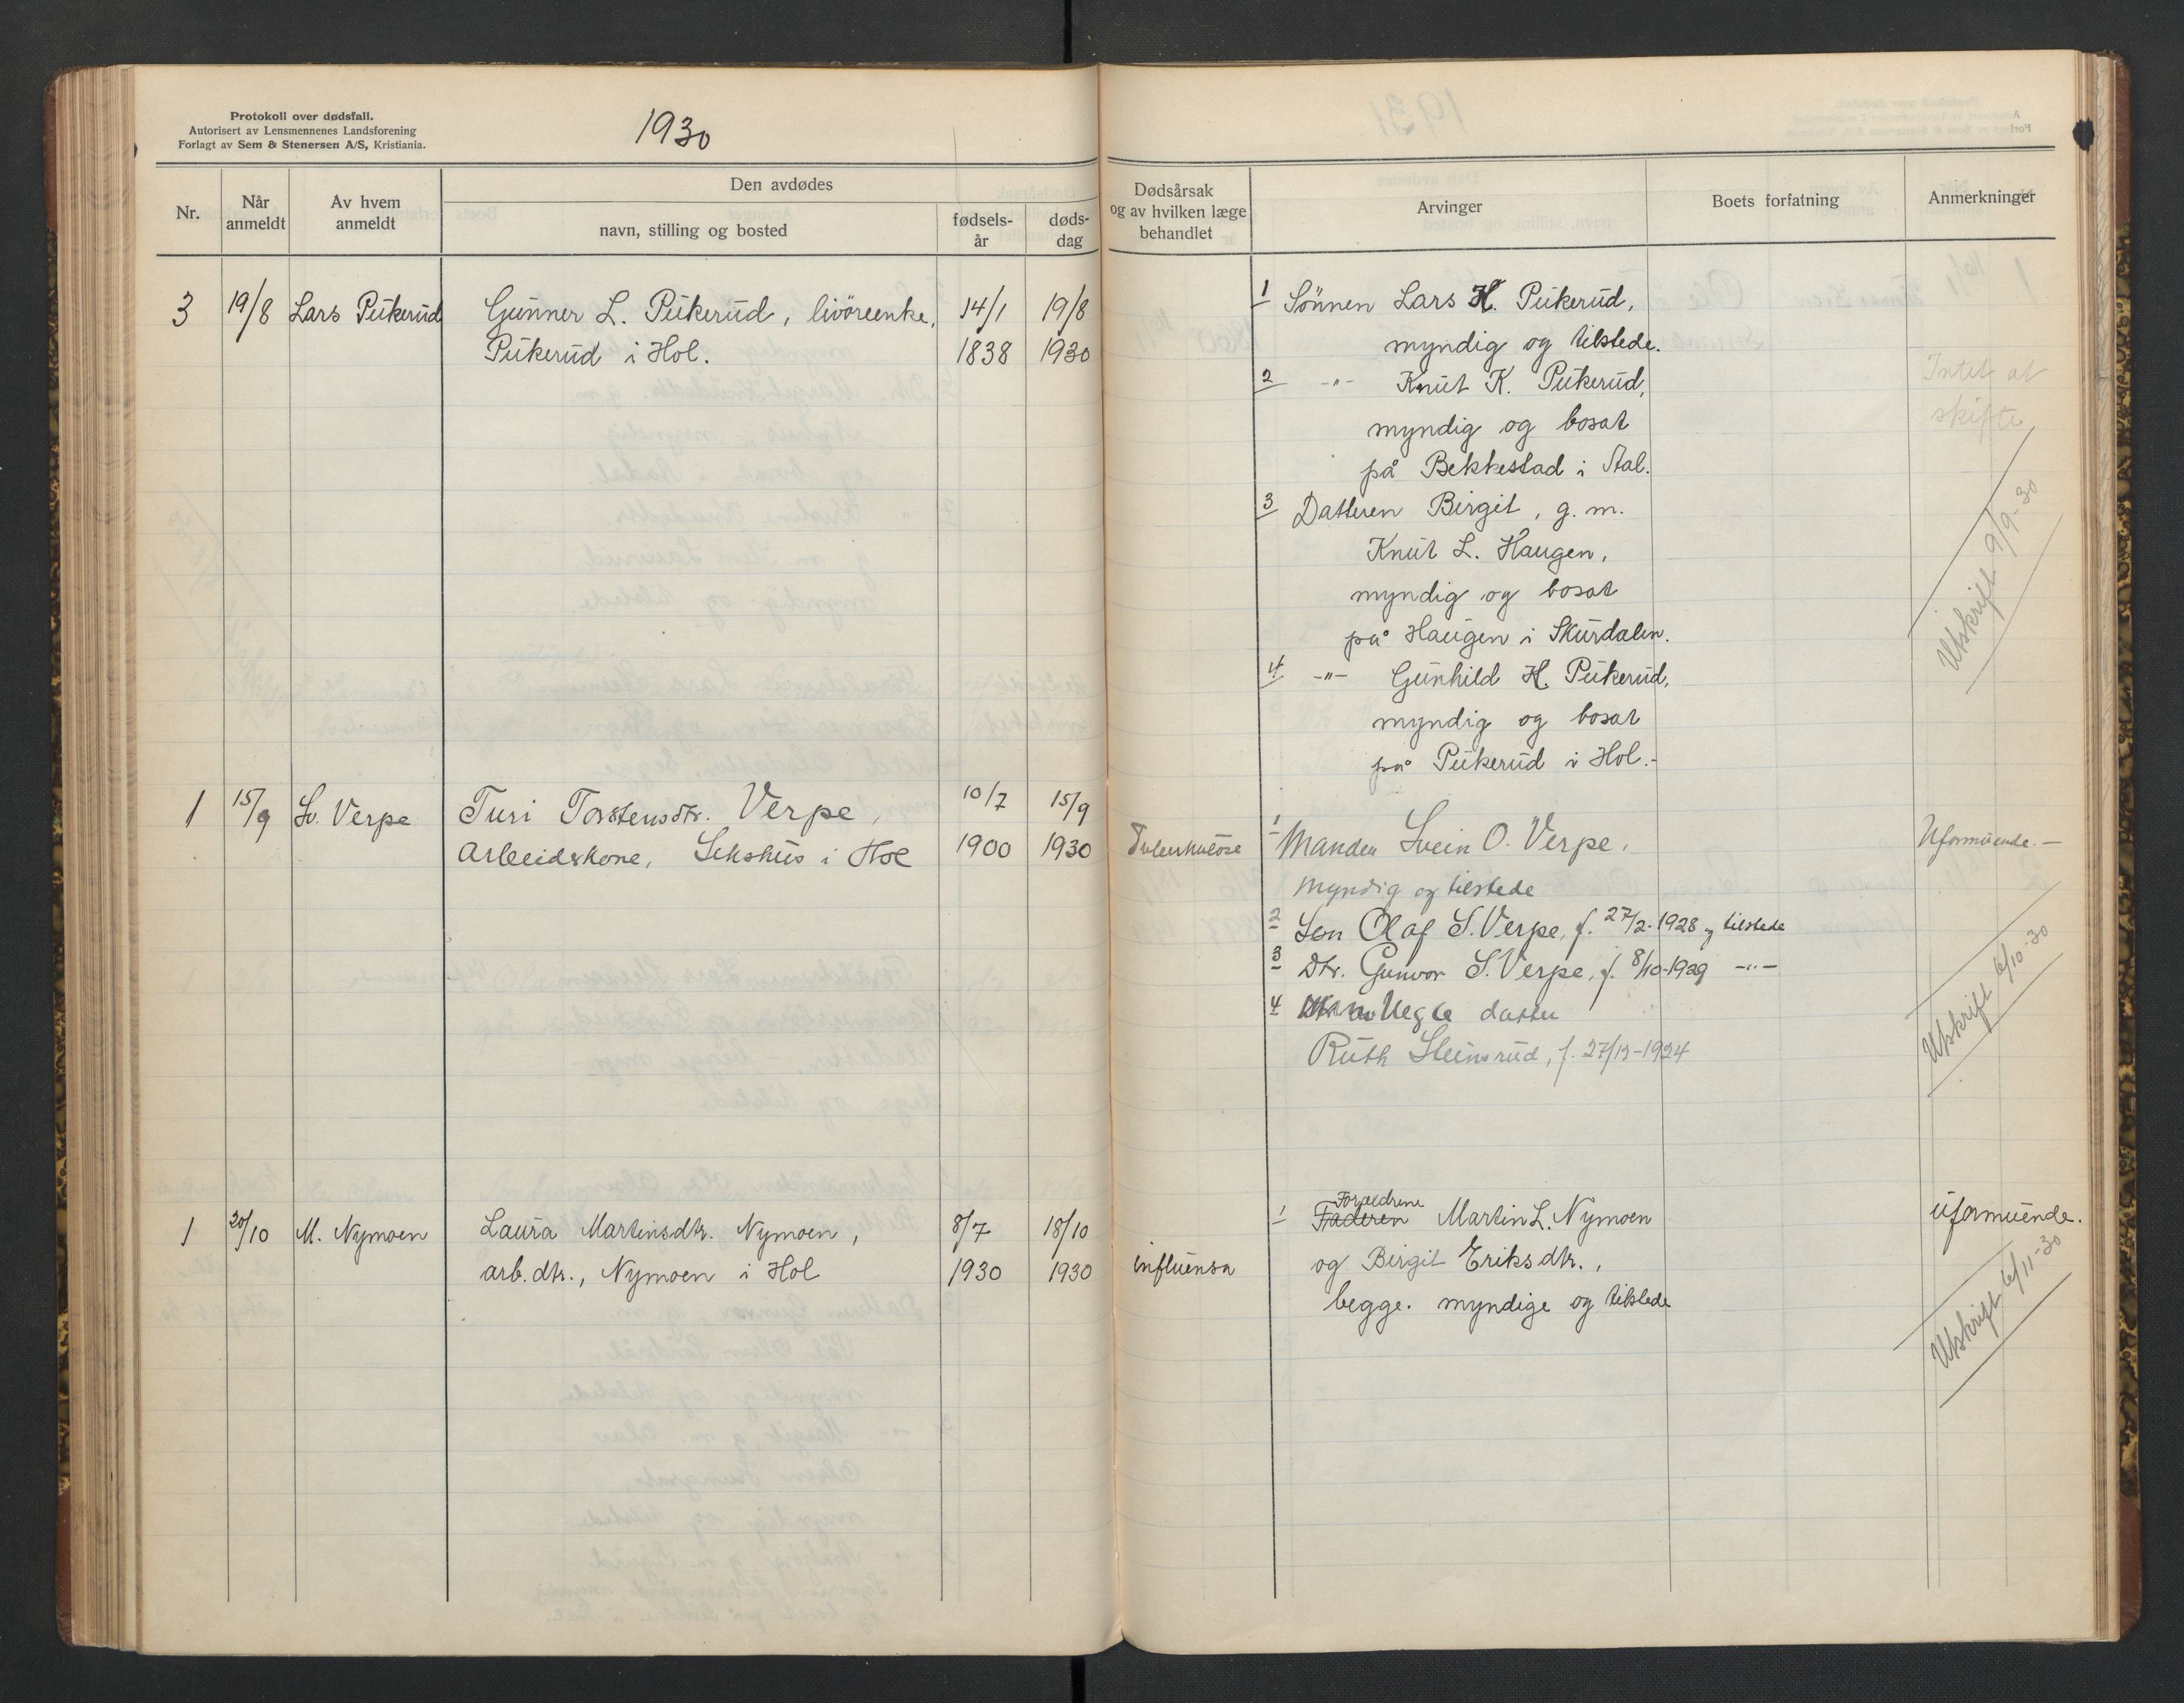 Protokoll over dødsfall.
Autorisert av Lensmennenes Landsforening
Forlagt av Sem & Stenersen A/S, Kristiania.
1930
Nr.
Når anmeldt
Av hvem anmeldt
Den avdødes
navn, stilling og bosted
fødsels-år
døds-dag
Dødsårsak og av hvilken læge behandlet
Arvinger
Boets forfatning
Anmerkninger
3 19/8 Lars Pükerüd Günner L. Pükerüd, livöreenke, 14/1 19/8
Pükerüd i Hol. 1838 1930
1 Sönnen Lars H. Pükerüd,
myndig og tilstede.
2 -"- Knüt K. Pükerüd,
myndig og bosat
på Bekkestad i Aal.
3 Datteren Birgit, g. m.
Knüt L. Haugen,
myndig og bosat
på Haügen i Skürdalen.
4 -"- Günhild H. Pükerüd,
myndig og bosat
på Pükerüd i Hol.-
Intet at
skifte
Utskrift 9/9-30
1 15/9 Sv. Verpe Turi Torstensdtr. Verpe, 10/7 15/9
Arbeidskone, i Hol 1900 1930 Tuberkulose
1 Manden Svein O. Verpe,
myndig og tilstede
2 Sön Olaf S. Verpe, f. 27/2-1928 og tilstede
3 Dtr. Gunvor S. Verpe, f. 8/10-1929 -"-
4 datter
Ruth Steinsrüd, f. -1924
Uformüende.-
Utskrift 6/10-30
1 20/10 M. Nymoen Laüra Martinsdtr. Nymoen, 8/7 18/10
arb. dtr., Nymoen i Hol 1930 1930 influensa
Forældrene
1 Faderen Martin L. Nymoen
og Birgit Eriksdtr.,
begge. myndige og tilstede
üformüende.
Utskrift 6/11-30